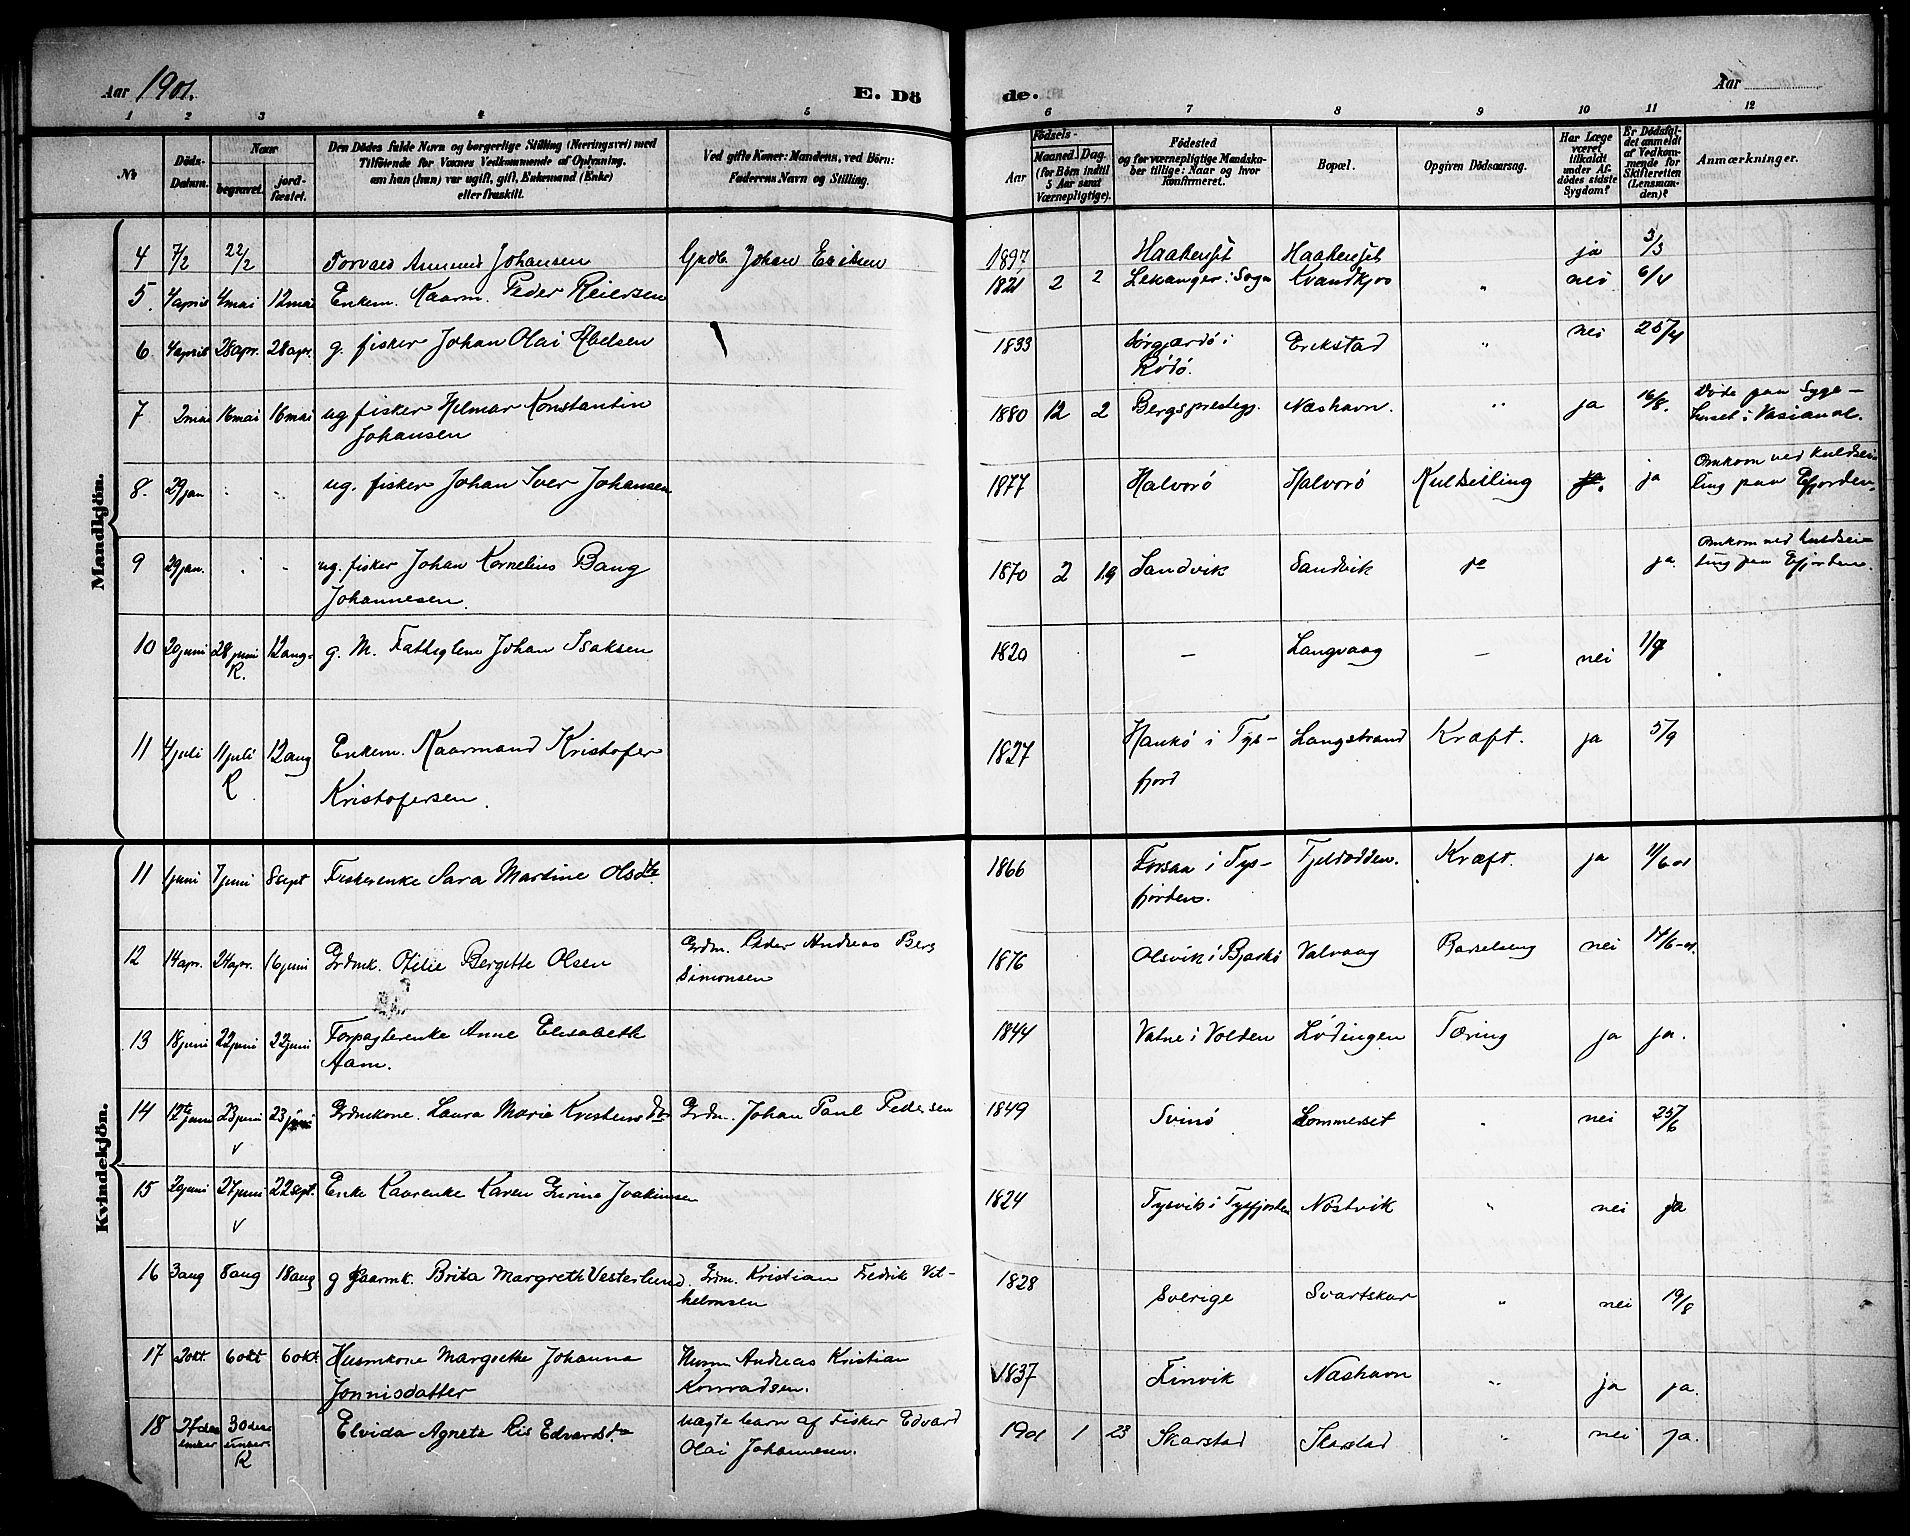 Aar 1901. E. Dö de. Aar
1 2 3 4 5 6 7 8 9 10 11 12
№ Döds-Datum. Naar begravet. jord-fæstet. Den Dödes fulde Navn og borgerlige Stilling (Næringsvei) med Tilföiende for Voxnes Vedkommende af Oplysning, om han (hun) var ugift, gift, Enkemand (Enke) eller fraskilt. Ved gifte Koner: Mandens, ved Börn: Faderens Navn og Stilling. Födsels- Aar Maaned. Dag. (for Börn indtil 5 Aar samt Værnepligtige). Födested og for værnepligtige Mandska-ber tillige: Naar og hvor konfirmeret. Bopæl. Opgiven Dödsaarsag. Har Læge været tilkaldt under Af-dödes sidste Sygdom? Er Dödsfal-det anmeldt af Vedkom-mende for Skifteretten (Lensman-den)? Anmærkninger.
Mandkjön.
4 7/2 22/2 Torvald Johansen Gadb. Johan Eriksen 1897 Haakenset Haakenset ja 3/3
5. 4 april 4 mai 12 mai Enkem. Kaarm. Peder Reiersen 1821 2 2 Lekanger i Sogn Kvandkjos " nei 6/4
6 4 april 28 apr. 28 apr. g. fisker Johan Olai Abelsen 1833 Sørgjerdø i Erikstad " nei 25/4
Rødø.
7 2 mai 16 mai 16 mai ug fisker Hilmar Konstantin 1880 12 2 Bergs prestegj. Næshavn. " ja 16/8. Døde paa Syge-
Johansen huset i
8. 29 jan " " ug. fisker Johan Iver Johansen 1877 Halvorø Halvorø Kulseiling ja. ja Omkom ved kuldsei-
ling paa Efjorden.
9 29 jan. " " ug. fisker Johan Kornelius Bang 1870 2 19 Sandvik Sandvik do ja. Omkom ved kuldsei-
Johannesen. ling paa Efjorden.
10 20 juni 28 juni 12 aug. g. M. Fattiglem Johan Isaksen 1820 — Langvaag — nei 1/7
R.
11 4 juli 11 juli 12 aug Enkem. Kaarmand Kristofer 1827 Hankö i Tys- Langstrand Kræft. ja 5/9
R Kristofersen. fjord
Kvindekjön.
11 1 juni 7 juni 8 sept Fiskerenke Sara Martine Olsdtr. 1866 Forsaa i Tys- Fjeldodden. Kræft. ja 11/6 01
fjorden.
12 14 apr. 24 apr. 16 juni Grdmk. Otilie Bergitte Olsen Grdm. Peder Andreas Berg 1876 Olsvik i Bjarkö Valvaag Barselseng nei 17/6-01.
Simonsen
13 18 juni 22 juni 22 juni Forpagterenke Anne Elisabeth 1844 Vatne i Volden Lödingen Tæring ja ja.
Aam.
14 12te juni 23 juni 23 juni Grdmkone. Laura Marie Kristensdtr Grdm. Johan Paul Pedersen 1849 Svinö Sommerset " nei 25/6
v
15 20 juni 27 juni 22 sept. Enke Kaarenke Karen Gurine Joakimsen 1824 Tysvik i Tysfjorden Nöstvik " nei ja
v
16 3 aug 8 aug 18 aug g Kaarmk. Brita Margreth Vesterlund Grdm. Kristian Fredrik Vil- 1828 Sverige Svartskar " nei 19/8
helmsen
17 2 okt. 6 okt 6 okt Husmkone Margrethe Johanna Husm Andreas Kristian v 1837 Finvik Næshavn " ja ja.
Jonnisdatter Konradsen.
18 27 des 30 des Elvida Agnete Ris Edvardsdtr uægte barn af Fisker Edvard 1901 1 23 Skarstad Skarstad " nei ja.
ember ember Olai Johannesen.
R